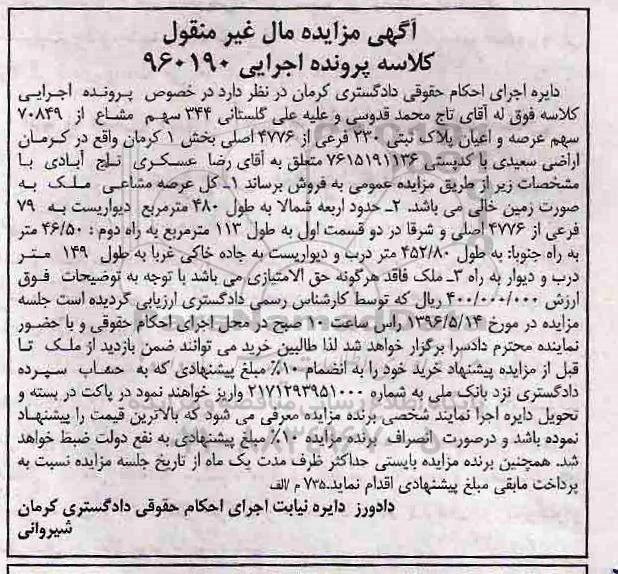 آگهی مزایده مال غیر منقول
کلاسه پرونده اجرایی ۹۶۰۱۹۰
دایره اجرای احکام حقوقی دادگستری کرمان در نظر دارد در خصوص پرونده اجرایی
کلاسه فوق له آقای تاج محمد قدوسی و علیه علی گلستانی ۳۴۴ سهم مشاع از ۷۰۸۴۹
سهم عرصه و اعیان پلاک ثبتی ۲۳۰ فرعی از ۴۷۷۶ اصلی بخش ۱ کرمان واقع در کرمان
اراضی سعیدی با کدپستی ۷۶۱۵۱۹۱۱۳۶ متعلق به آقای رضا عسکری تاج آبادی با
مشخصات زیر از طریق مزایده عمومی به فروش برساند ۱ـ کل عرصه مشاعی ملک به
صورت زمین خالی می باشد. ۲ـ حدود اربعه شمالا به طول ۴۸۰ مترمربع دیواریست به ۷۹
فرعی از ۴۷۷۶ اصلی و شرقا در دو قسمت اول به طول ۱۱۳ مترمربع به راه دوم : ۴۶/۵۰ متر
به راه جنوبا: به طول ۴۵۲/۸۰ متر درب و دیواریست به جاده خاکی غربا به طول ۱۴۹ متر
درب و دیوار به راه ۳ـ ملک فاقد هرگونه حق الامتیازی می باشد با توجه به توضیحات فوق
ارزش ۴۰۰/۰۰۰/۰۰۰ ریال که توسط کارشناس رسمی دادگستری ارزیابی گردیده است جلسه
مزایده در مورخ ۱۳۹۶/۵/۱۴ راس ساعت ۱۰ صبح در محل اجرای احکام حقوقی و با حضور
نماینده محترم دادسرا برگزار خواهد شد لذا طالبین خرید می توانند ضمن بازدید از ملک تا
قبل از مزایده پیشنهاد خرید خود را به انضمام ۱۰٪ مبلغ پیشنهادی که به حساب سپرده
دادگستری نزد بانک ملی به شماره ۲۱۷۱۲۹۳۹۵۱۰۰۰ واریز خواهند نمود در پاکت در بسته و
تحویل دایره اجرا نمایند شخصی برنده مزایده معرفی می شود که بالاترین قیمت را پیشنهاد
نموده باشد و درصورت انصراف برنده مزایده ۱۰٪ مبلغ پیشنهادی به نفع دولت ضبط خواهد
شد. همچنین برنده مزایده بایستی حداکثر ظرف مدت یک ماه از تاریخ جلسه مزایده نسبت به
پرداخت مابقی مبلغ پیشنهادی اقدام نماید.۷۳۵ م/الف
دادورز دایره نیابت اجرای احکام حقوقی دادگستری کرمان
شیروانی